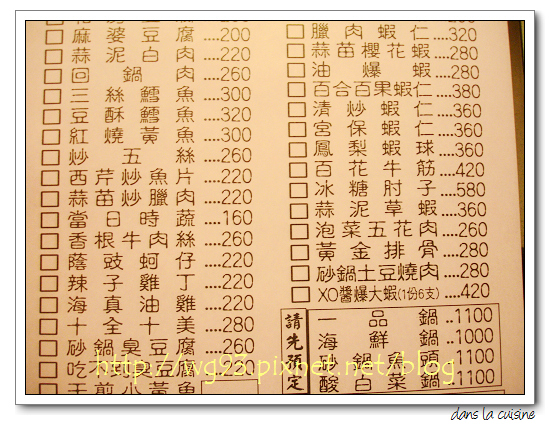 麻婆豆腐....200
蒜泥白肉....220
回鍋肉....260
三絲鱈魚....300
豆酥鱈魚....320
紅燒黃魚....300
炒五絲....260
西芹炒魚片....220
蒜苗炒臘肉....220
當日時蔬....160
香根牛肉絲....260
蔭豉蚵仔....220
辣子雞丁....220
海真油雞....220
十全十美....280
砂鍋臭豆腐....260
臘肉蝦仁....320
蒜苗櫻花蝦....280
油爆蝦....280
百合百果蝦仁....380
清炒蝦仁....360
宮保蝦仁....360
鳳梨蝦球....360
百花牛筋....420
冰糖肘子....580
蒜泥草蝦....360
泡菜五花肉....260
黃金排骨....280
砂鍋土豆燒肉....280
XO醬爆大蝦(1份6支)....420
請先預定
一品鍋..1100
海鮮鍋..1000
鍋魚頭..1100
酸白菜鍋..1100
http://wg93.pixnet.net/blog
dans la cuisine